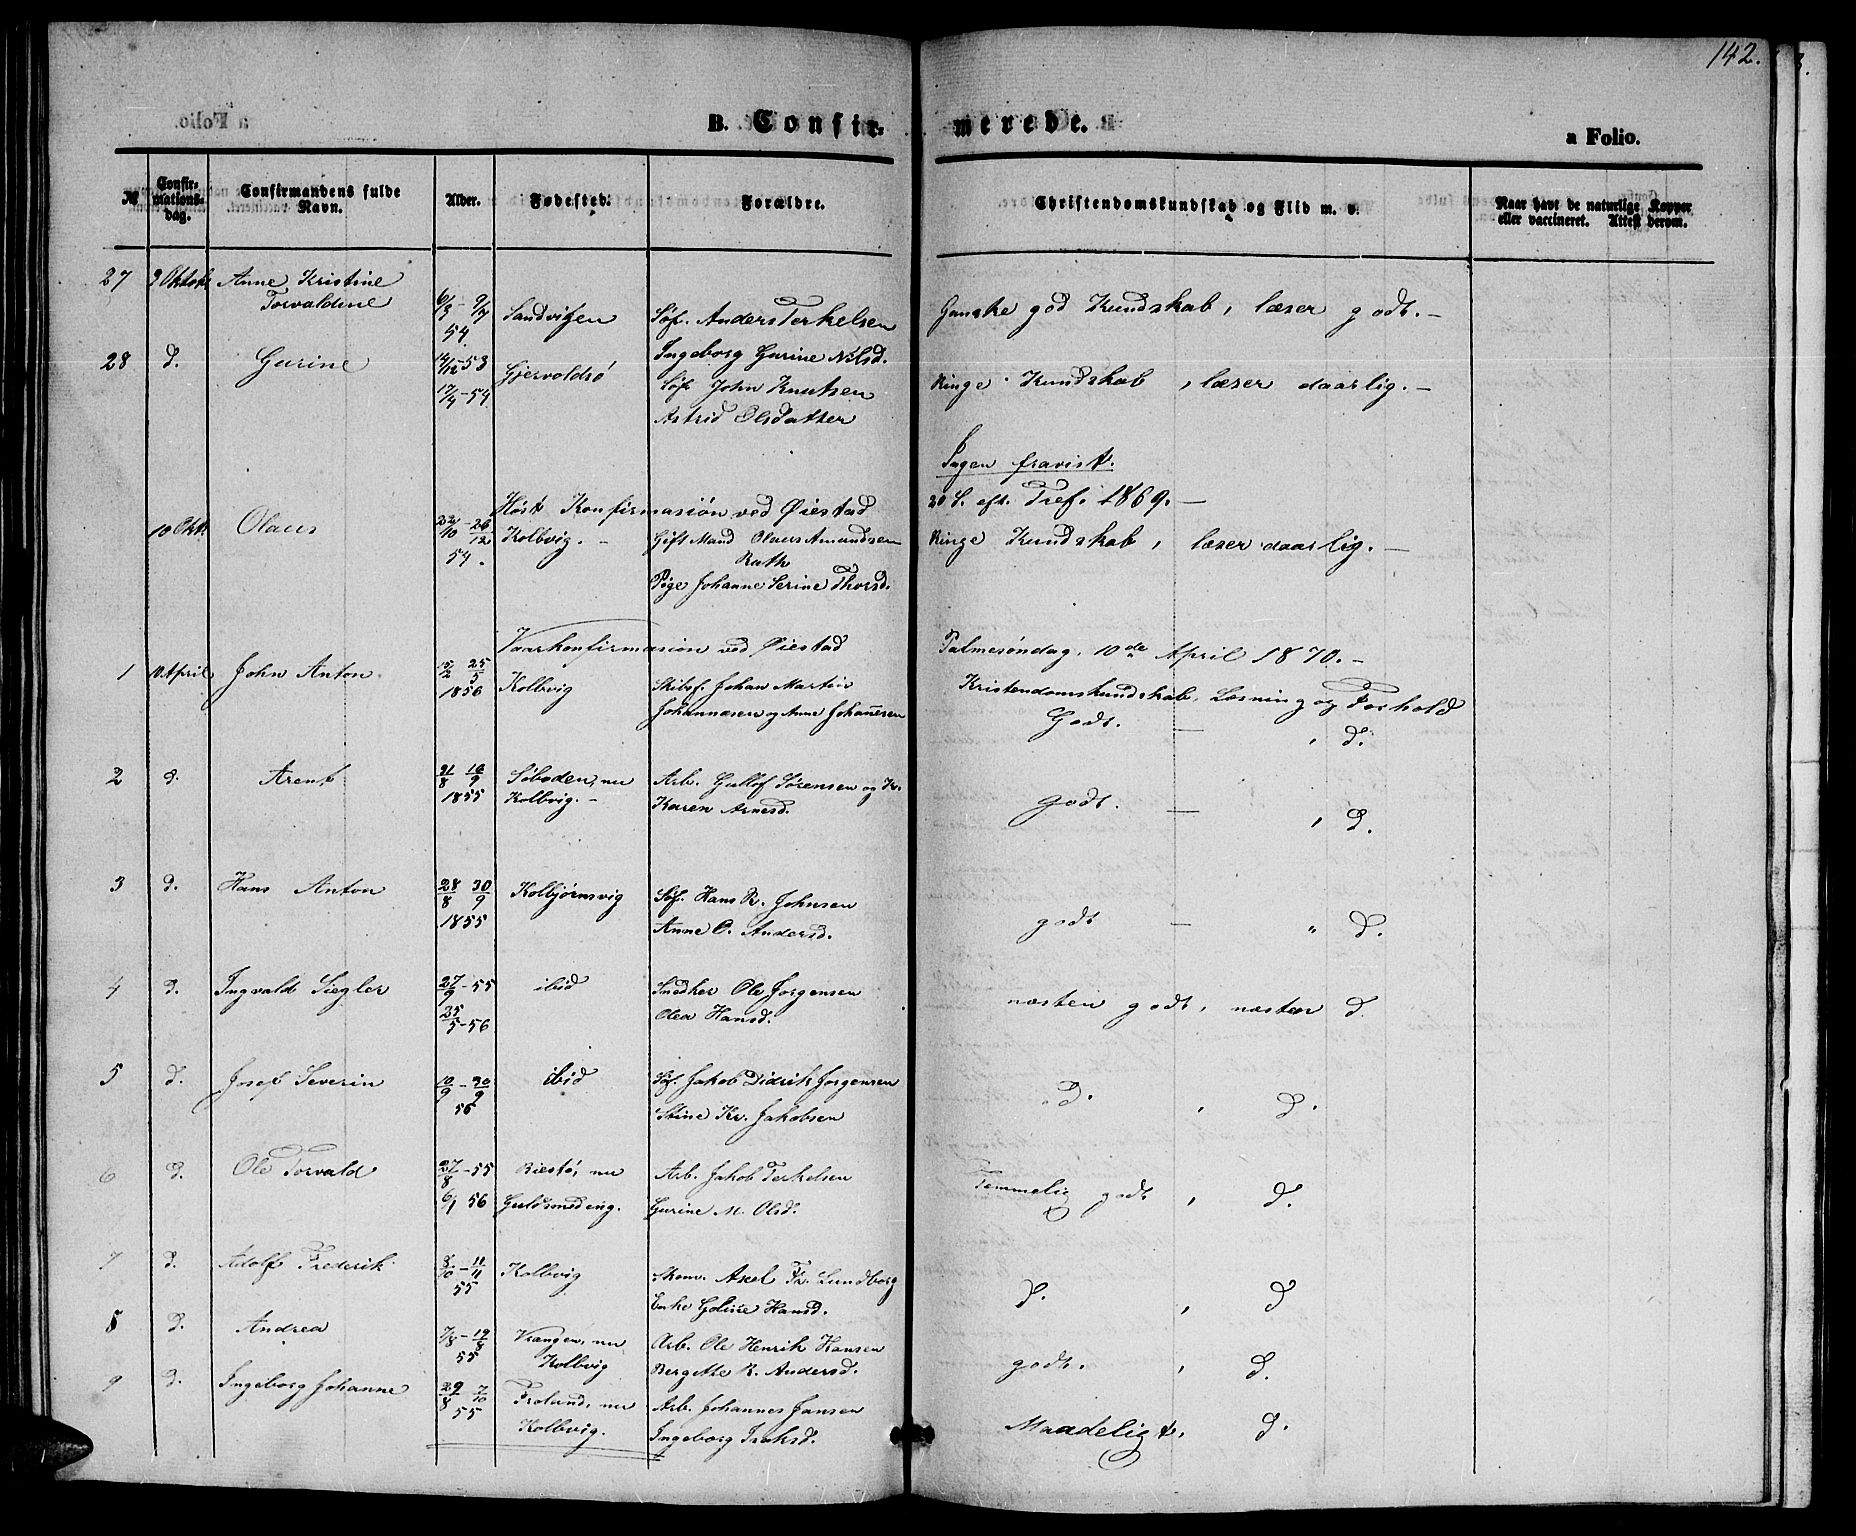 142.
B. Confir-
merede.
a Folio.
№
Confir-
mations-
dag.
Confirmandens fulde
Navn.
Alder.
Fødested.
Forældre.
Christendomskundskab og Flid m. v.
Naar havt de naturlige Kopper
eller vaccineret. Attest derom.
27 9 Oktob. Anne Kristine
Torvaldine 6/3 - 9/7 54. Sandvigen Søf. Anders Terkelsen
Ingeborg Gurine Nilsd.
Ganske god Kundskab, læser godt. -
28 d. Gurine 14/12-53 17/4-54 Gjervoldsø Søf. John Knutsen
Astrid Olsdatter
Ringe Kundskab, læser daarlig. -
Ingen fravist.
Høst Konfirmasiøn ved Øiestad
20 S. eft. Tref. 1869. -
10 Okt. Olaus 22/10 - 26/12 54. Kolbvig. - Gift Mand Olaus Amundsen
Rath
Pige Johanne Serine Thorsd.
Ringe Kundskab, læser daarlig. -
Vaarkonfirmasion ved Øiestad
Palmesøndag, 10de April 1870. -
Kristendomskundskab, Læsning og Forhold
1 10 April John Anton 15/2 25/5 1856 Kolbvig Skibsf. Johan Martin
Johannesen og Anne Johannesen
Godt. - , d.
2 d. Arent 31/8 16/9 1855 Søboden, nu
Kolbvig. - Arb. Gullof Sørensen og K.
Karen Arnesd.
godt. - , d.
3 d. Hans Anton 28/8 30/9 1855 Kolbjørnsvig Søf. Hans R. Johnsen
Anne O. Andersd.
godt - " d.
4 d. Ingvald Siegler 27/9-55 25/5-56 ibid Snedker Ole Jorgensen
Olea Hansd.
næsten godt, næsten d.
5 d. Josef Severin 10/9 - 30/9 55 ibid Søf. Jakob Didrik Jorgensen
Stine Kr. Jakobsen
d. , d.
6 d. Ole Torvald 27/8-55 6/1 56 Riestø, nu
Guldsmedeng. Arb. Jakob Terkelsen
Gurine M. Olsd.
Temmelig godt , d.
7 d. Adolf Frederik 8/10 - 11/11 55 Kolbvig Skom. Axel Fr. Lundborg
Enke Goline Hansd.
d. , d
8 d. Andrea 7/8 - 19/8 55 Vrængen, nu
Kolbvig Arb. Ole Henrik Hansen
Bergitte R. Andersd.
godt. , d.
9 d. Ingeborg Johanne 29/8 7/10 55 Froland, nu
Kolbvig. Arb. Johannes Jansen
Ingeborg Iraksd.
Maadeligt, d.